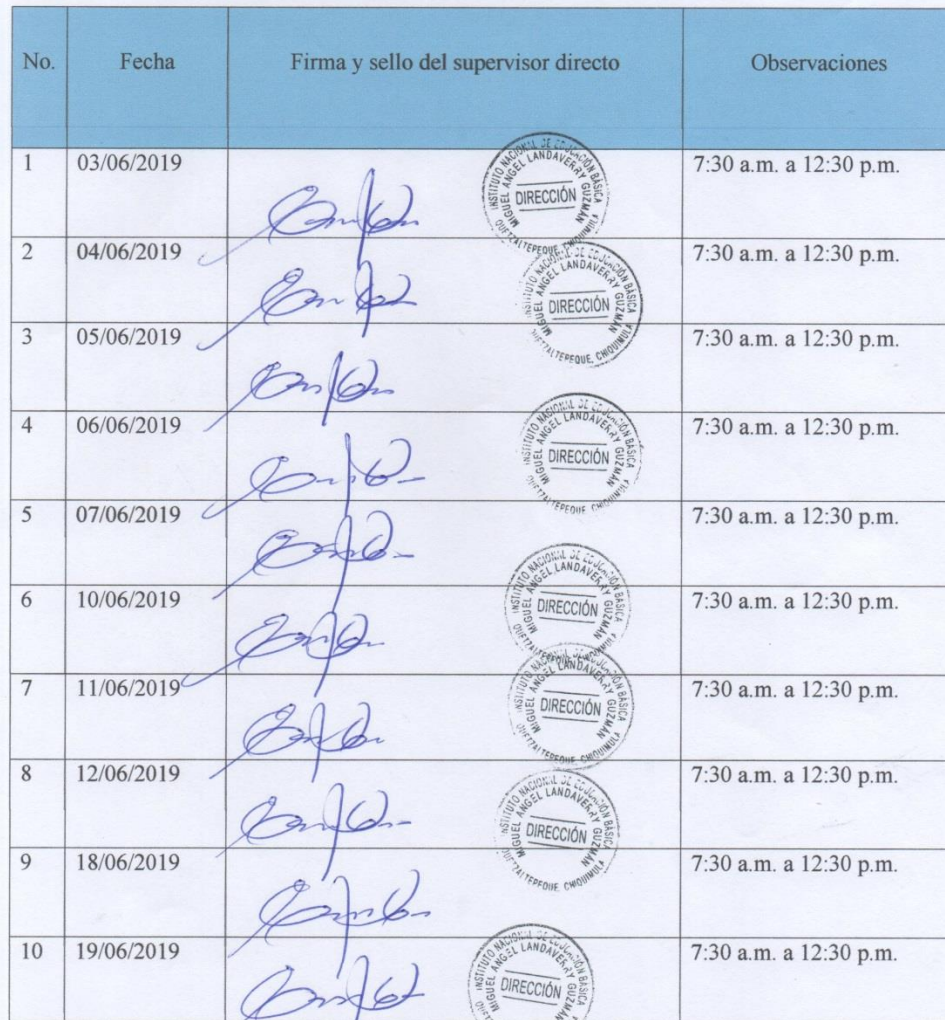 No. Fecha Firma y sello del supervisor directo Observaciones
1 03/06/2019 7:30 a.m. a 12:30 p.m.
INSTITUTO NACIONAL DE EDUCACIÓN BÁSICA
MIGUEL ANGEL LANDAVERRY GUZMAN
DIRECCIÓN
QUETZALTEPEQUE, CHIQUIMULA
2 04/06/2019 7:30 a.m. a 12:30 p.m.
INSTITUTO NACIONAL DE EDUCACIÓN BÁSICA
MIGUEL ANGEL LANDAVERRY GUZMAN
DIRECCIÓN
QUETZALTEPEQUE, CHIQUIMULA
3 05/06/2019 7:30 a.m. a 12:30 p.m.
4 06/06/2019 7:30 a.m. a 12:30 p.m.
INSTITUTO NACIONAL DE EDUCACIÓN BÁSICA
MIGUEL ANGEL LANDAVERRY GUZMAN
DIRECCIÓN
QUETZALTEPEQUE, CHIQUIMULA
5 07/06/2019 7:30 a.m. a 12:30 p.m.
6 10/06/2019 7:30 a.m. a 12:30 p.m.
INSTITUTO NACIONAL DE EDUCACIÓN BÁSICA
MIGUEL ANGEL LANDAVERRY GUZMAN
DIRECCIÓN
QUETZALTEPEQUE, CHIQUIMULA
7 11/06/2019 7:30 a.m. a 12:30 p.m.
INSTITUTO NACIONAL DE EDUCACIÓN BÁSICA
MIGUEL ANGEL LANDAVERRY GUZMAN
DIRECCIÓN
QUETZALTEPEQUE, CHIQUIMULA
8 12/06/2019 7:30 a.m. a 12:30 p.m.
INSTITUTO NACIONAL DE EDUCACIÓN BÁSICA
MIGUEL ANGEL LANDAVERRY GUZMAN
DIRECCIÓN
QUETZALTEPEQUE, CHIQUIMULA
9 18/06/2019 7:30 a.m. a 12:30 p.m.
10 19/06/2019 7:30 a.m. a 12:30 p.m.
INSTITUTO NACIONAL DE EDUCACIÓN BÁSICA
MIGUEL ANGEL LANDAVERRY GUZMAN
DIRECCIÓN